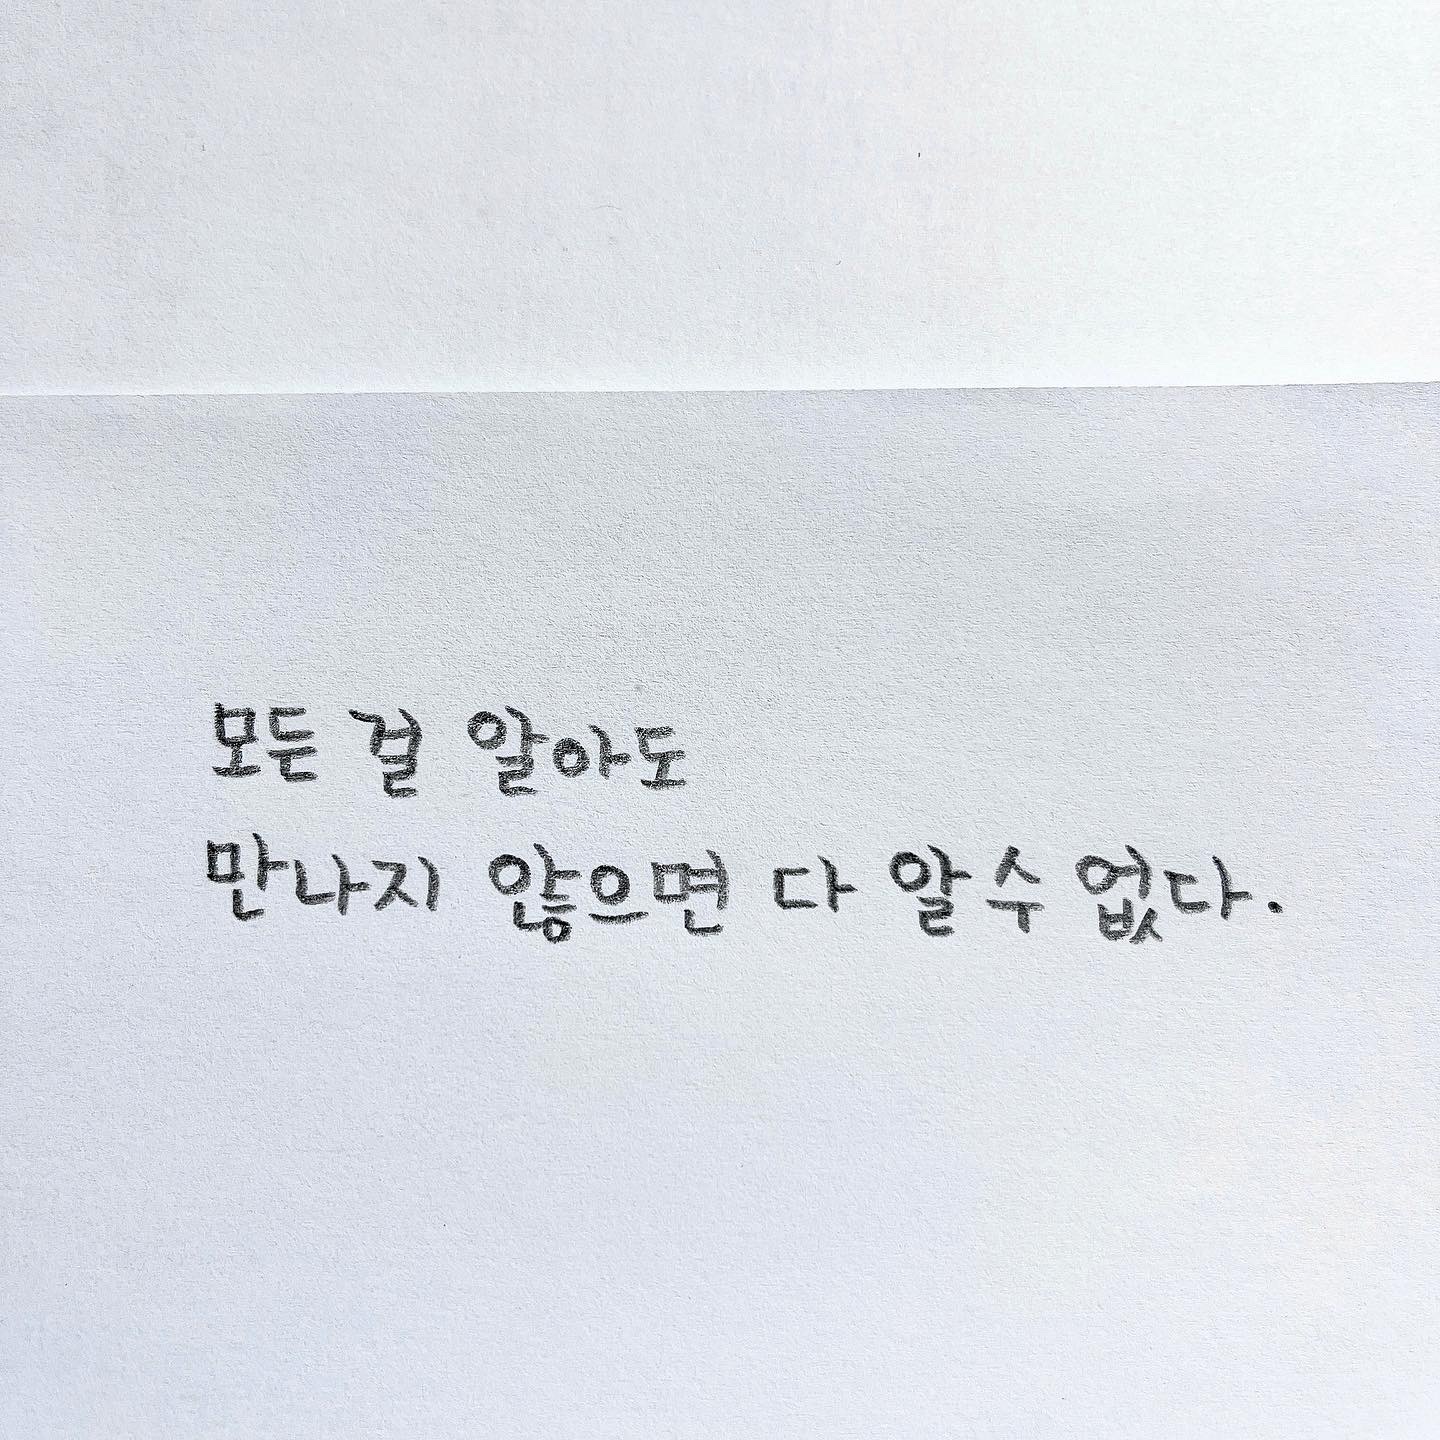 모든 걸 알아도
만나지 않으면 다 알 수 없다.